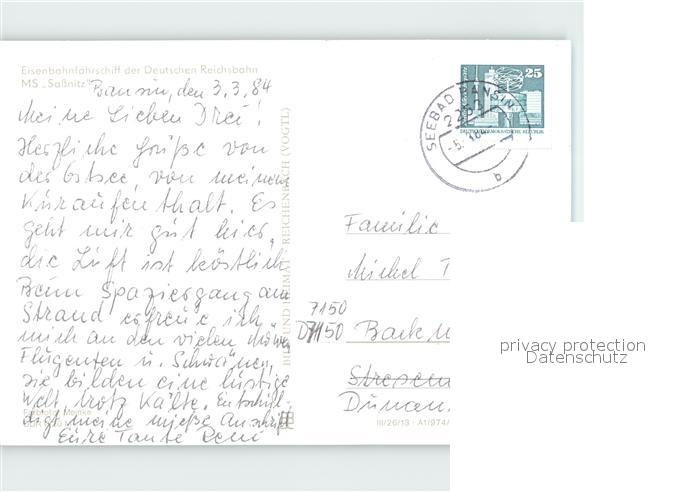 Eisenbahnfährschiff der Deutschen Reichsbahn
MS „Saßnitz"
Bansin, den 3.3.84
Meine Lieben Drei!
Herzliche Grüße von
der Ostsee, von meinem
Kuraufenthalt. Es
geht mir gut hier,
die Luft ist köstlich
Beim Spaziergang am
Strand erfreue ich
mich an den vielen Möwen
Flugenten u. Schwänen,
sie bilden eine lustige
Welt, trotz Kälte. Entschul-
digt meine miese Anschrift
Eure Tante
Farbfoto:
BILD UND HEIMAT · REICHENBACH (VOGTL)
III/26/13 · A1/974/
25
DEUTSCHE DEMOKRATISCHE REPUBLIK
SEEBAD BANSIN
2253
b
Familie
Michel T
7150
D7150
privacy protection
Datenschutz